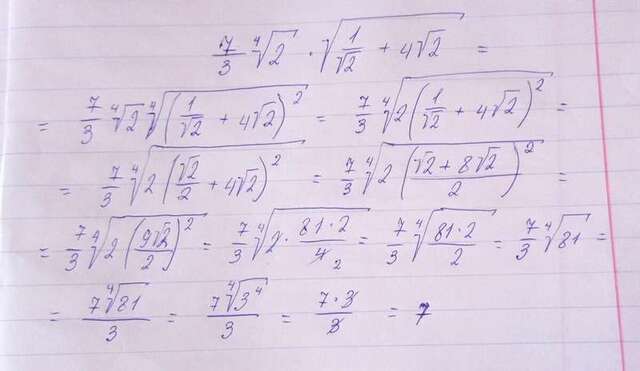 7/3 ∜2 · √(1/√2 + 4√2) =
= 7/3 ∜2 ∜((1/√2 + 4√2)²) = 7/3 ∜(2(1/√2 + 4√2)²) =
= 7/3 ∜(2(√2/2 + 4√2)²) = 7/3 ∜(2((√2 + 8√2)/2)²) =
= 7/3 ∜(2(9√2/2)²) = 7/3 ∜(2 · (81·2)/4 2) = 7/3 ∜((81·2)/2) = 7/3 ∜81 =
= 7∜81/3 = 7∜(3⁴)/3 = (7·3)/3 = 7